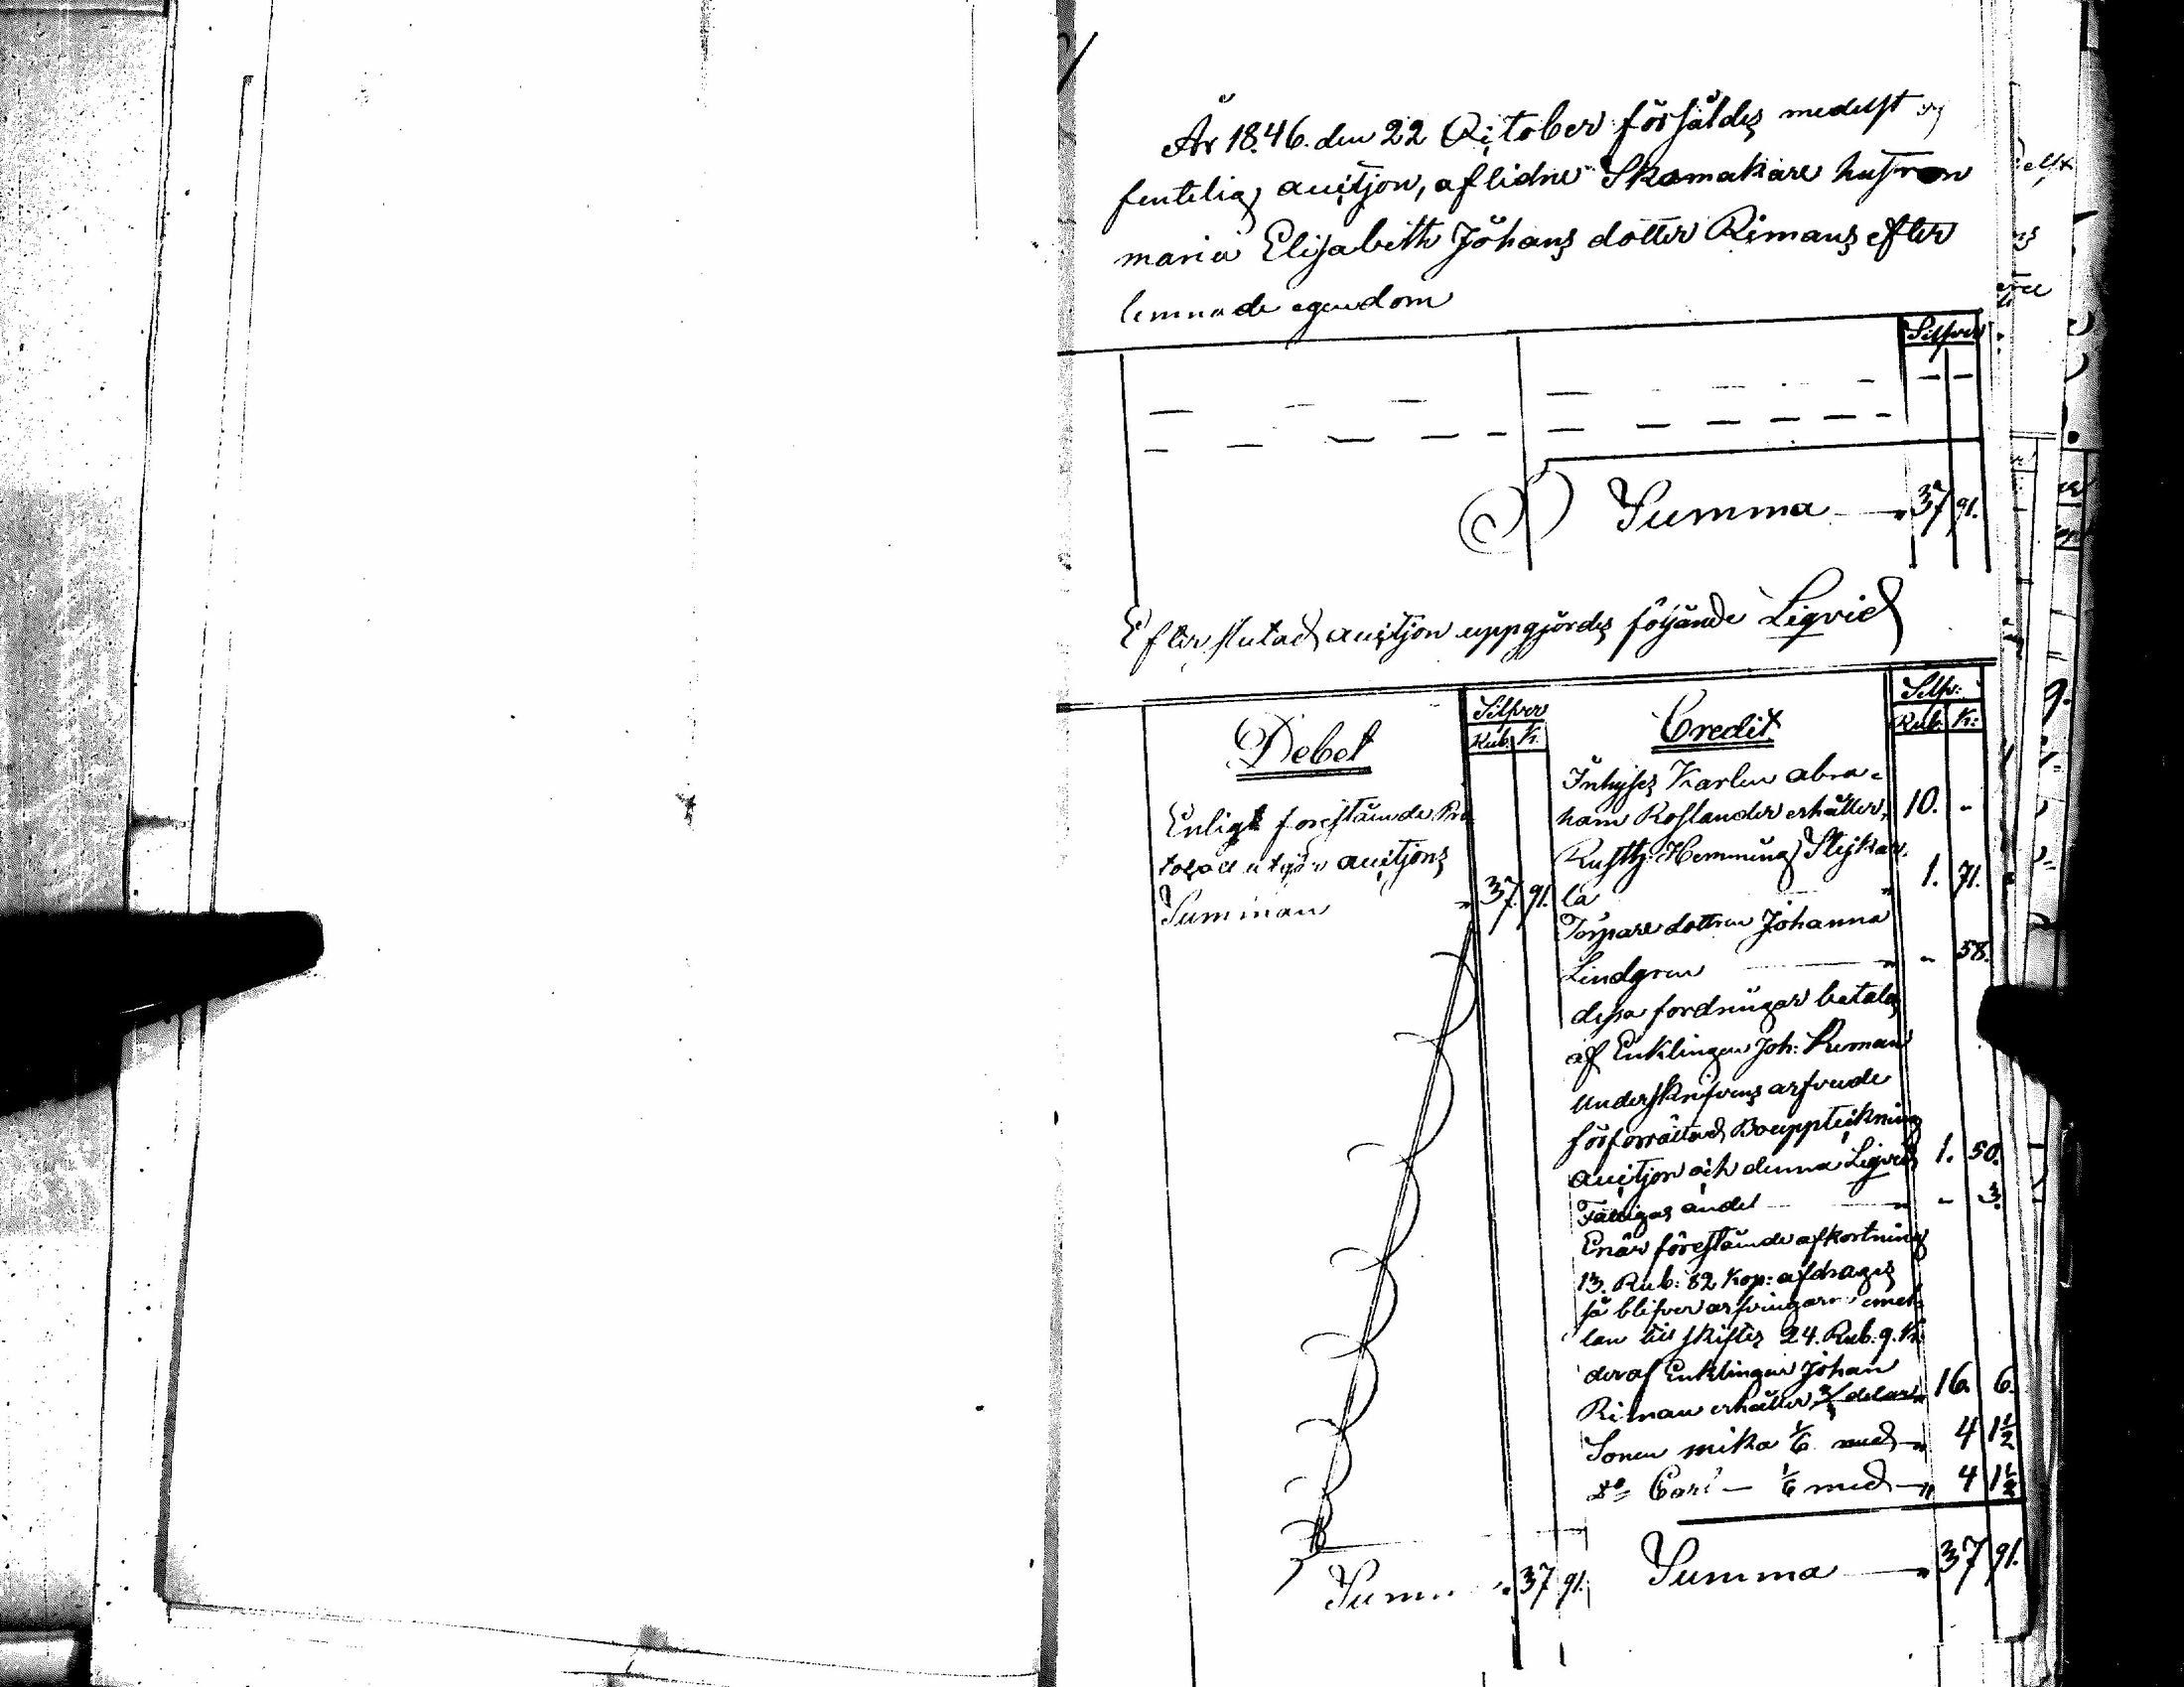 År 1846. den 22 October försåldes medelst of
fentelig auctjon, aflidne Skomakare hustrun
maria Elisabeth Johans dotter Rimans efter
lemnade egendom
Silfver
Summa 37 91.
Efter slutad auctjon uppgjordes följande Liqvid
Debet
Silfver
Rub. K.
Enligt förestående Pro
tocoll utgör auctjons
Summan 37. 91.
Summ 37 91.
Credit
Silfv:
Rub. K:
Inhyses Karlen abra=
ham Roslander erhåller, 10. -
Rustth: Hemming Slejka
la 1. 71.
Torpare dottren Johanna
Lindgren - 58.
dessa fordringar betalas
af Enklingen Joh: Riman
underskrifvens arfvode
för förrättad Bouppteckning
auctjon och denna Liqvid 1. 50.
Fattigas andel - 3.
Enär förestående afkortning
13. Rub: 82 Kop: afdrages
så blifver arfvingarne emel
lan till skiftes 24. Rub. 9. K:
deraf Enklingen Johan
Riman erhåller 2/3 delar 16. 6.
Sonen mika 1/6 med 4 1 1/2
Do Carl - 1/6 med 4 1 1/2
Summa 37 91.